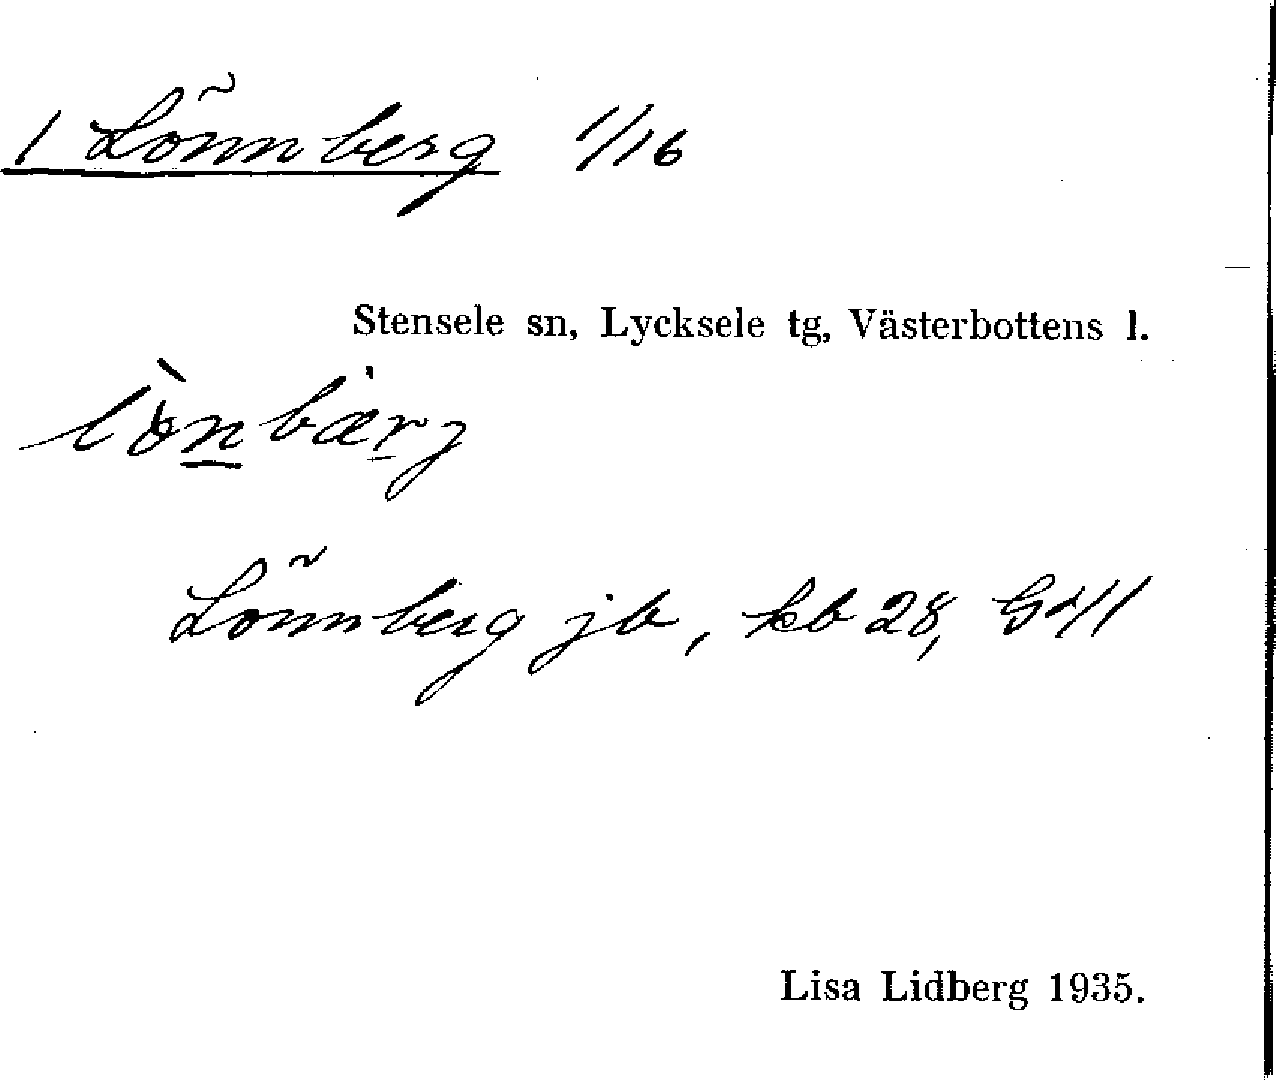 1 Lönnberg 1/16
Stensele sn, Lycksele tg, Västerbottens l.
Lönnberg jb, kb 28,
Lisa Lidberg 1935.